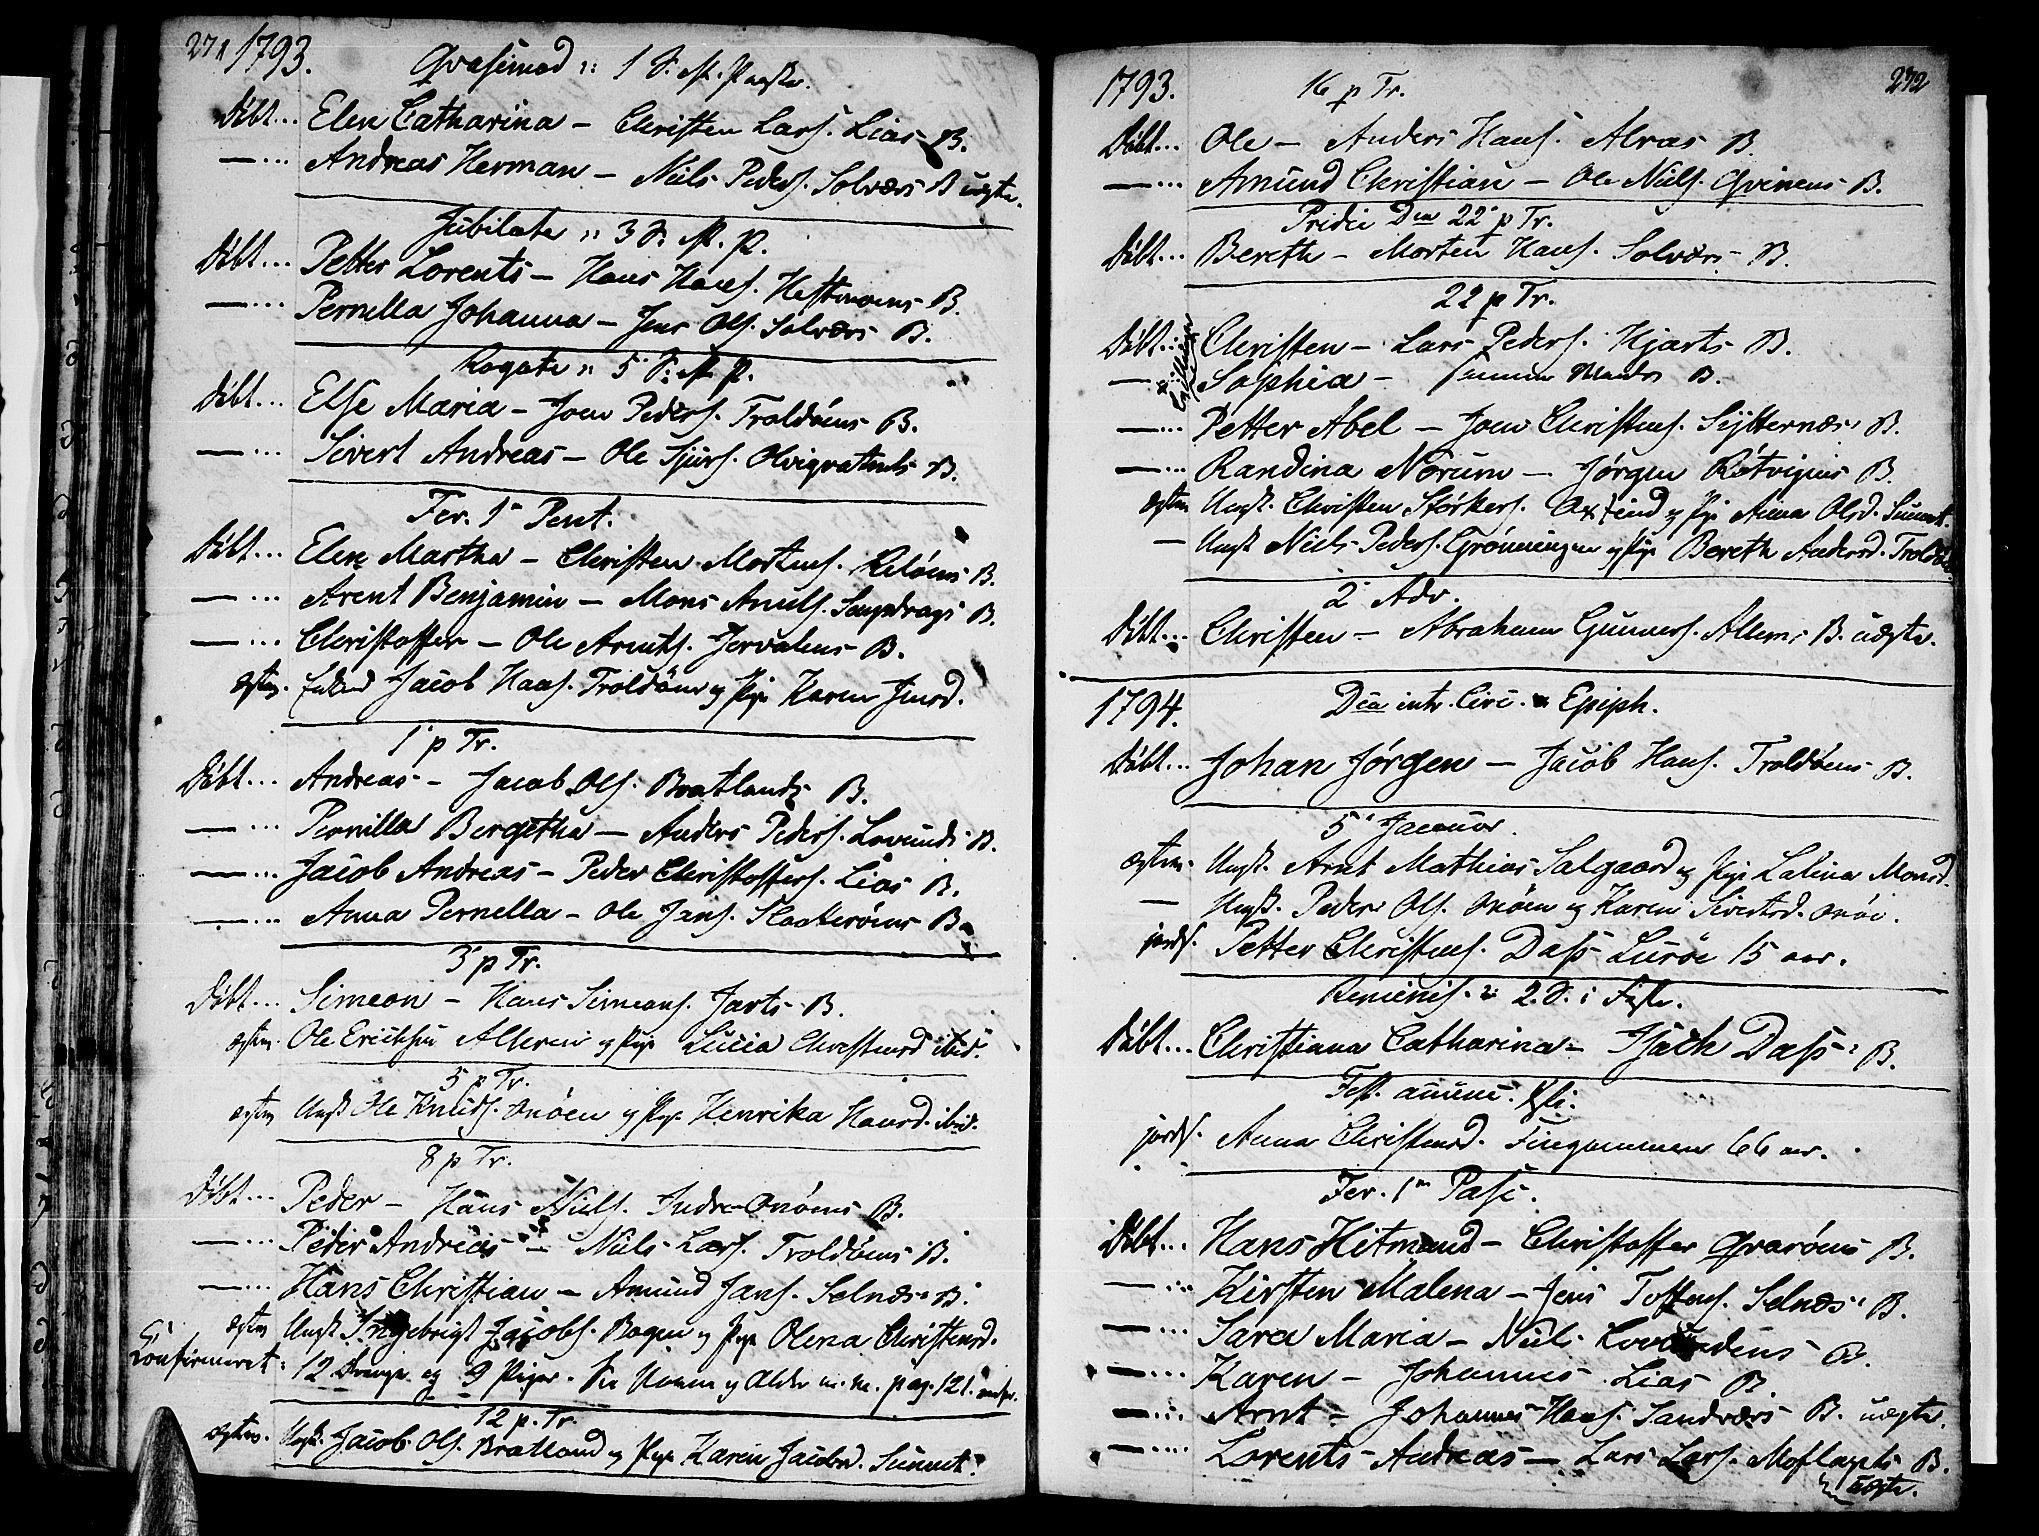 271 1793. Qvasimod :: 1 S. Paaske.
Döbt... Elen Catharina – Christen Lars. Lias B.
— ... Andreas Herman – Niels Peders. Solværs B uægte.
Jubilate :: 3 S. p.
Döbt... Petter Lorents – Hans Hans. Hestmoens B.
— ... Pernella Johanna – Jens Ols. Solværs B.
Rogate :: 5 S. p.
Döbt... Else Maria – Joen Peders. Troldöens B.
— ... Sivert Andreas – Ole Sjurs. B.
Fer. 1a Pent.
Döbt... Elen Martha – Christen Mortens. Relöens B.
— ... Arent Benjamin – Mons B.
— ... Christoffer – Ole Arnts. B.
ægtev. Jacob Hans. Troldöen og Pige Karen Jensd.
1 p Tr.
Döbt... Andreas – Jacob Ols. Bratlands B.
— ... Pernilla Bergetha – Anders Peders. Lovunds B.
— ... Jacob Andreas – Peder Christoffers. Lias B.
— ... Anna Pernella – Ole Jans. B.
3 p Tr.
Döbt... Simeon – Hans Simeons. Jarts B.
ægtev. Ole Erichsen Alteren og Pige Lucia Christensd. ibid.
5 p Tr.
ægtev Ungk Ole Knuds. Onöen og Pige Henrika Hansd. ibid.
8 p Tr.
Döbt... Peder – Hans Niels. Indre-Onöens B.
— ... Peder Andreas – Niels Lars. Troldöens B.
— ... Hans Christian – Amund Jans. Selnæs B.
ægtev Ungk Ingebrigt Jacobs. Bogen og Pige Olena Christensd.
Confirmeret: 12 Drenge og 9 Piger. pag. 121.
12 p. Tr.
ægtev. Ungk. Jacob Ols. Bratland og Pige Karen Jacobsd. Sunnet.
1793. 16 p Tr. 272
Döbt... Ole – Anders Hans. Alvas B.
— ... Amund Christian – Ole Niels. Qvinens B.
Pridie Dca 22 p Tr.
Döbt... Bereth – Morten Hans. Solværs B.
22 p Tr.
Tvillinger
Döbt... Christen – Lars Peders. Hjarts B.
— Sophia – B.
— ... Petter Abel – Joen Christens. B.
— ... Randina Norum – Jörgen Rötvigens B.
ægtev Ungk. Christen Störkers. og Pige Anna Olsd. Sunnet.
— Ungk Niels Peders. Grönningen og Pige Bereth Andersd.
2 Adv.
Döbt... Christen – Abraham Gunners. Altern: B. uægte.
1794. Dca intr. Circ. & Epiph.
Döbt... Johan Jörgen – Jacob Hans. Troldöens B.
5 Januar.
ægtev. Ungk. Arnt Mathias Salgaard og Pige Lalina Monsd.
— Ungk. Peder Ols. Onöen og Karen Sivertsd. Onöe.
jordf. Petter Christens. Dass Luröe 15 aar.
Reminis. :: 2. S. i Faste.
Döbt... Christiana Catharina – Isach Dass: B.
Fest. annunc.
jordf. Anna Christensd. Finganmnen 66 aar.
Fer. 1a Pasc.
Döbt... Hans Hetmand – Christoffer Qvaröens B.
— ... Kirsten Malena – Jens Tostens. Selnæs: B.
— ... Sara Maria – Niels Lovundens B.
— ... Karen – Johannes Lias B.
— ... Arnt – Johannes Hans. Sandværs B. uægte.
— ... Lorents Andreas – Lars Lars. B. uægte.